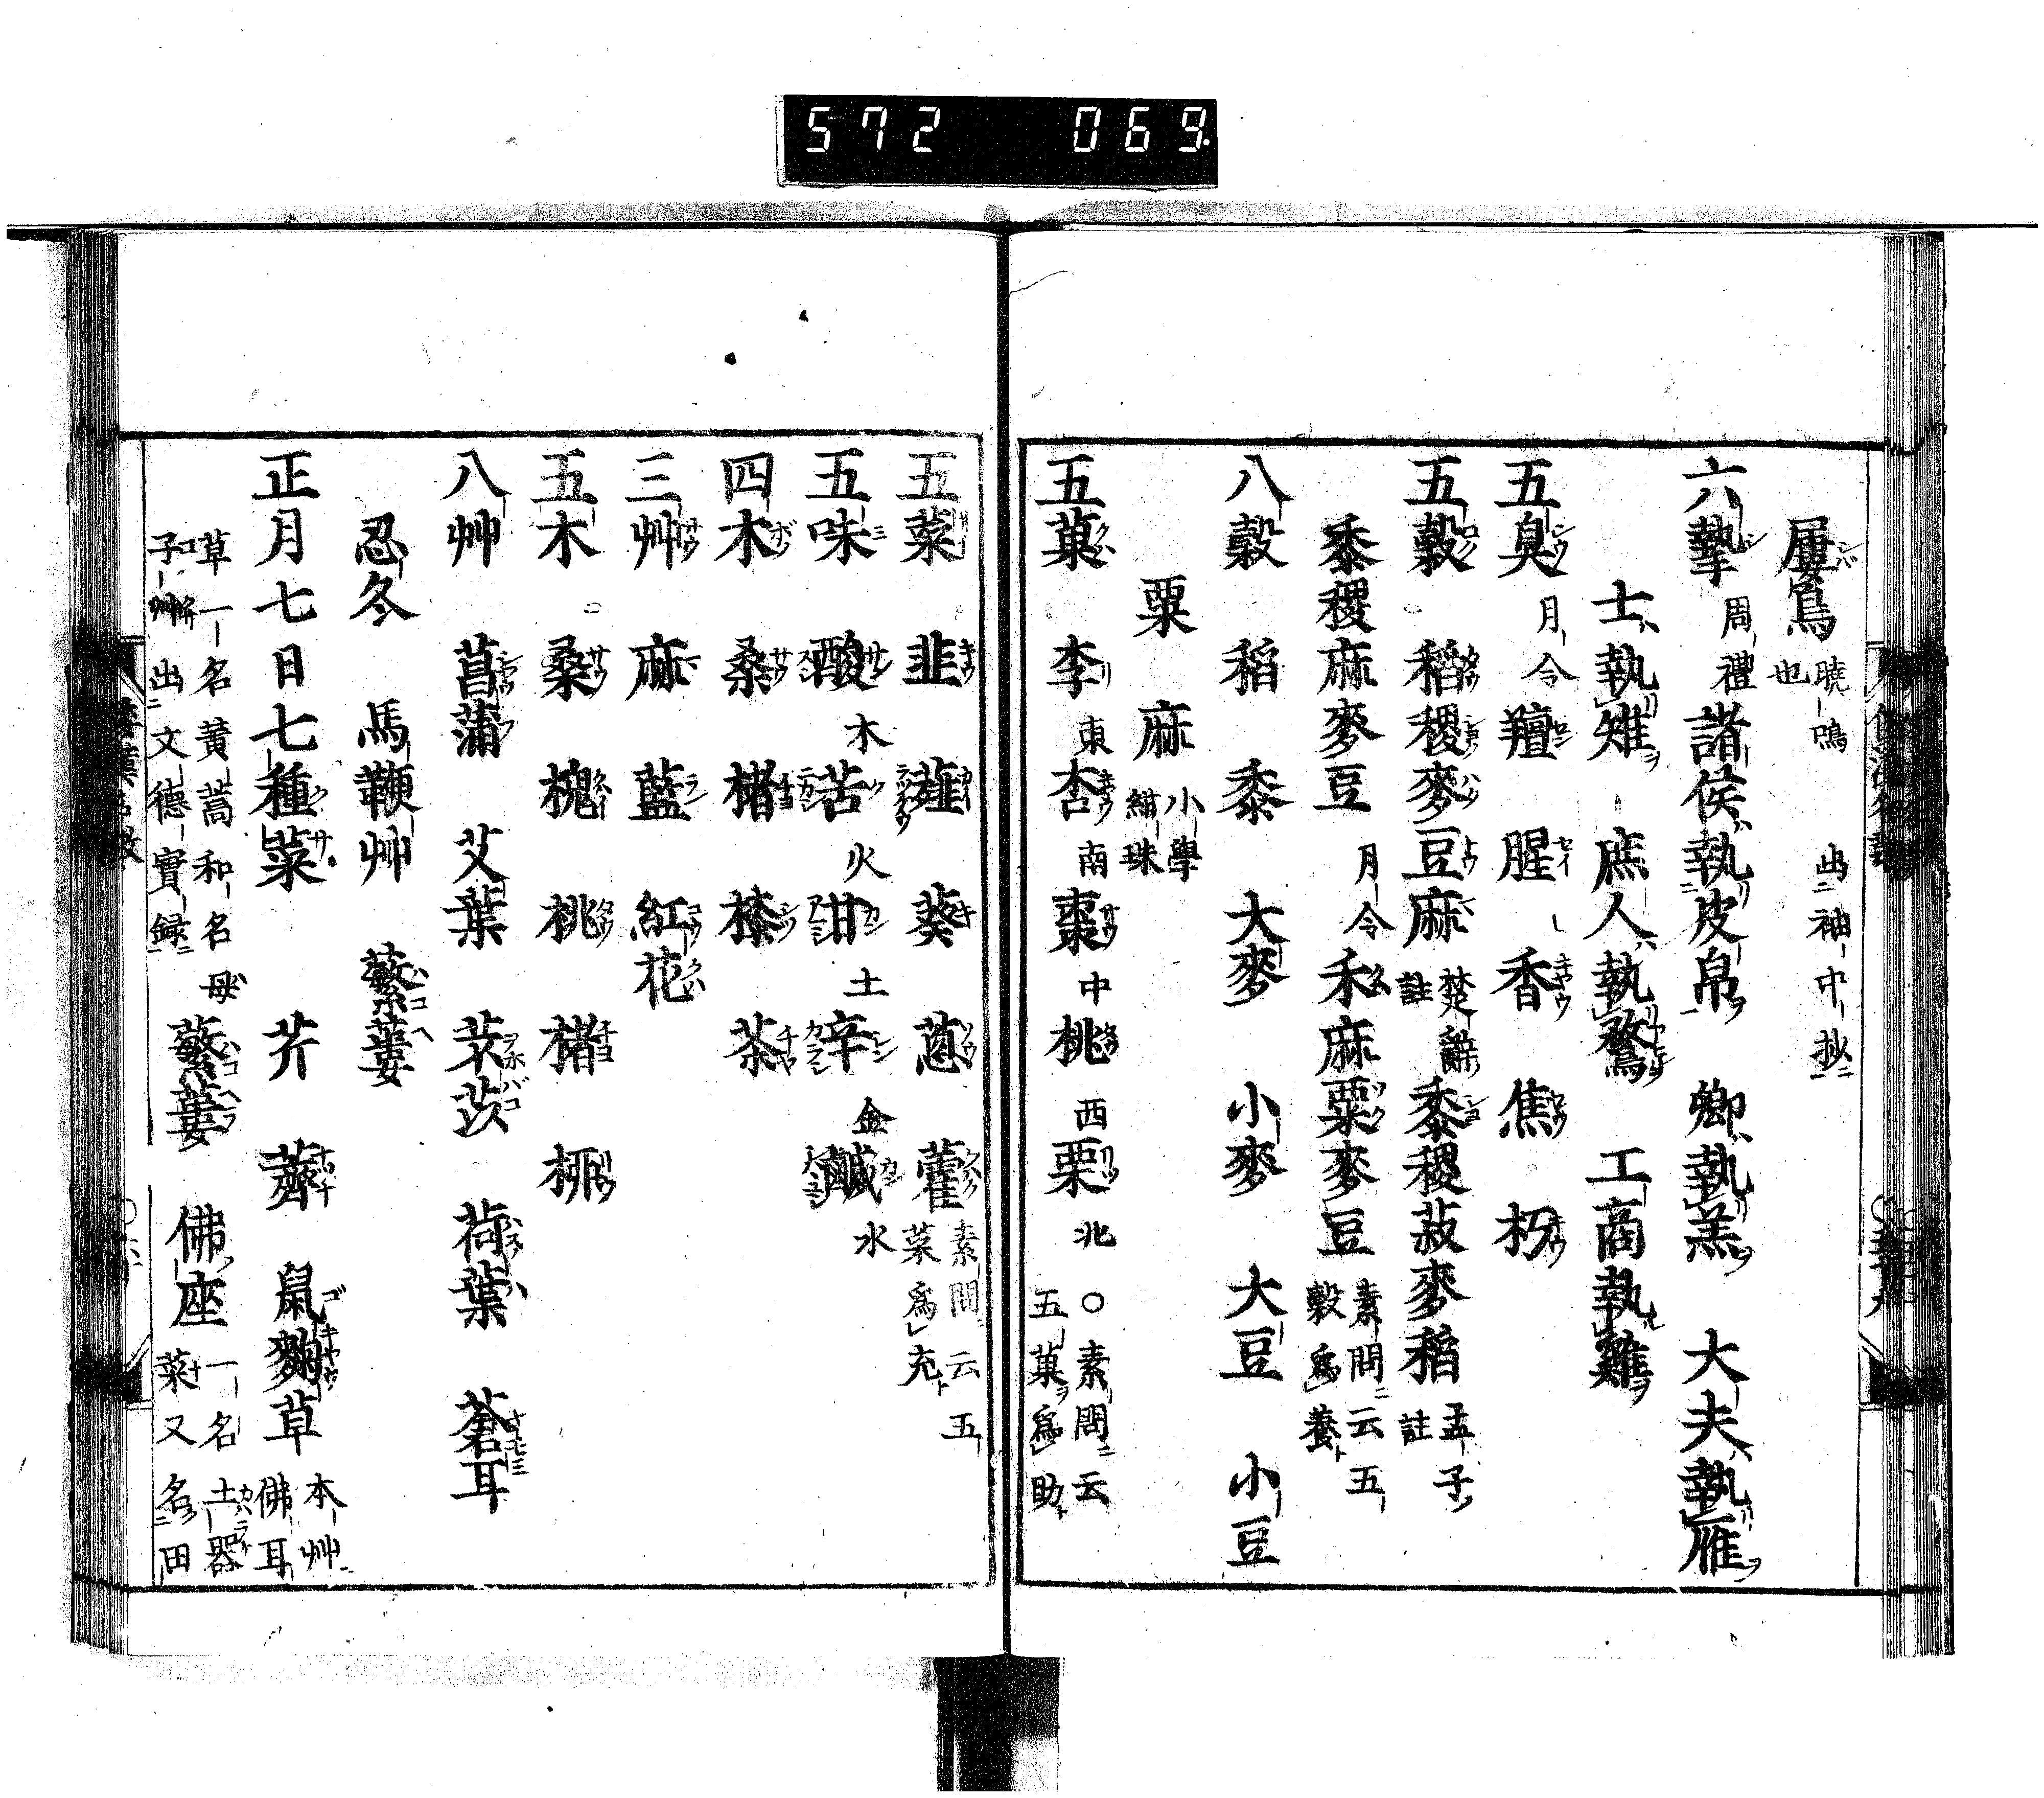 572 069.
屢鳥 曉鳴也 出袖中抄
六摯 周禮 諸侯執皮帛 卿執羔 大夫執雁
士執雉 庶人執鶩 工商執雞
五臭 月令 羶 腥 香 焦 朽
五穀 稻稷麥豆麻 楚辭註 黍稷菽麥稻 孟子註
黍稷麻麥豆 月令 禾麻粟麥豆 素問云五穀爲養
八穀 稻 黍 大麥 小麥 大豆 小豆
粟 麻 小學紺珠
五菓 李東 杏南 棗中 桃西 栗北 ○素問云五菓爲助
五菜 韭 薤 葵 蔥 藿 素問云五菜爲充
五味 酸木 苦火 甘土 辛金 鹹水
四木 桑 楮 漆 茶
三艸 麻 藍 紅花
五木 桑 槐 桃 楮 柳
八艸 菖蒲 艾葉 荷葉 蒼耳
忍冬 馬鞭艸 蘩蔞
正月七日七種菜 芥 薺 鼠麴草 本艸佛耳
草一名黃蒿和名母子艸出文德實錄 蘩蔞 佛座 一名土器菜又名田